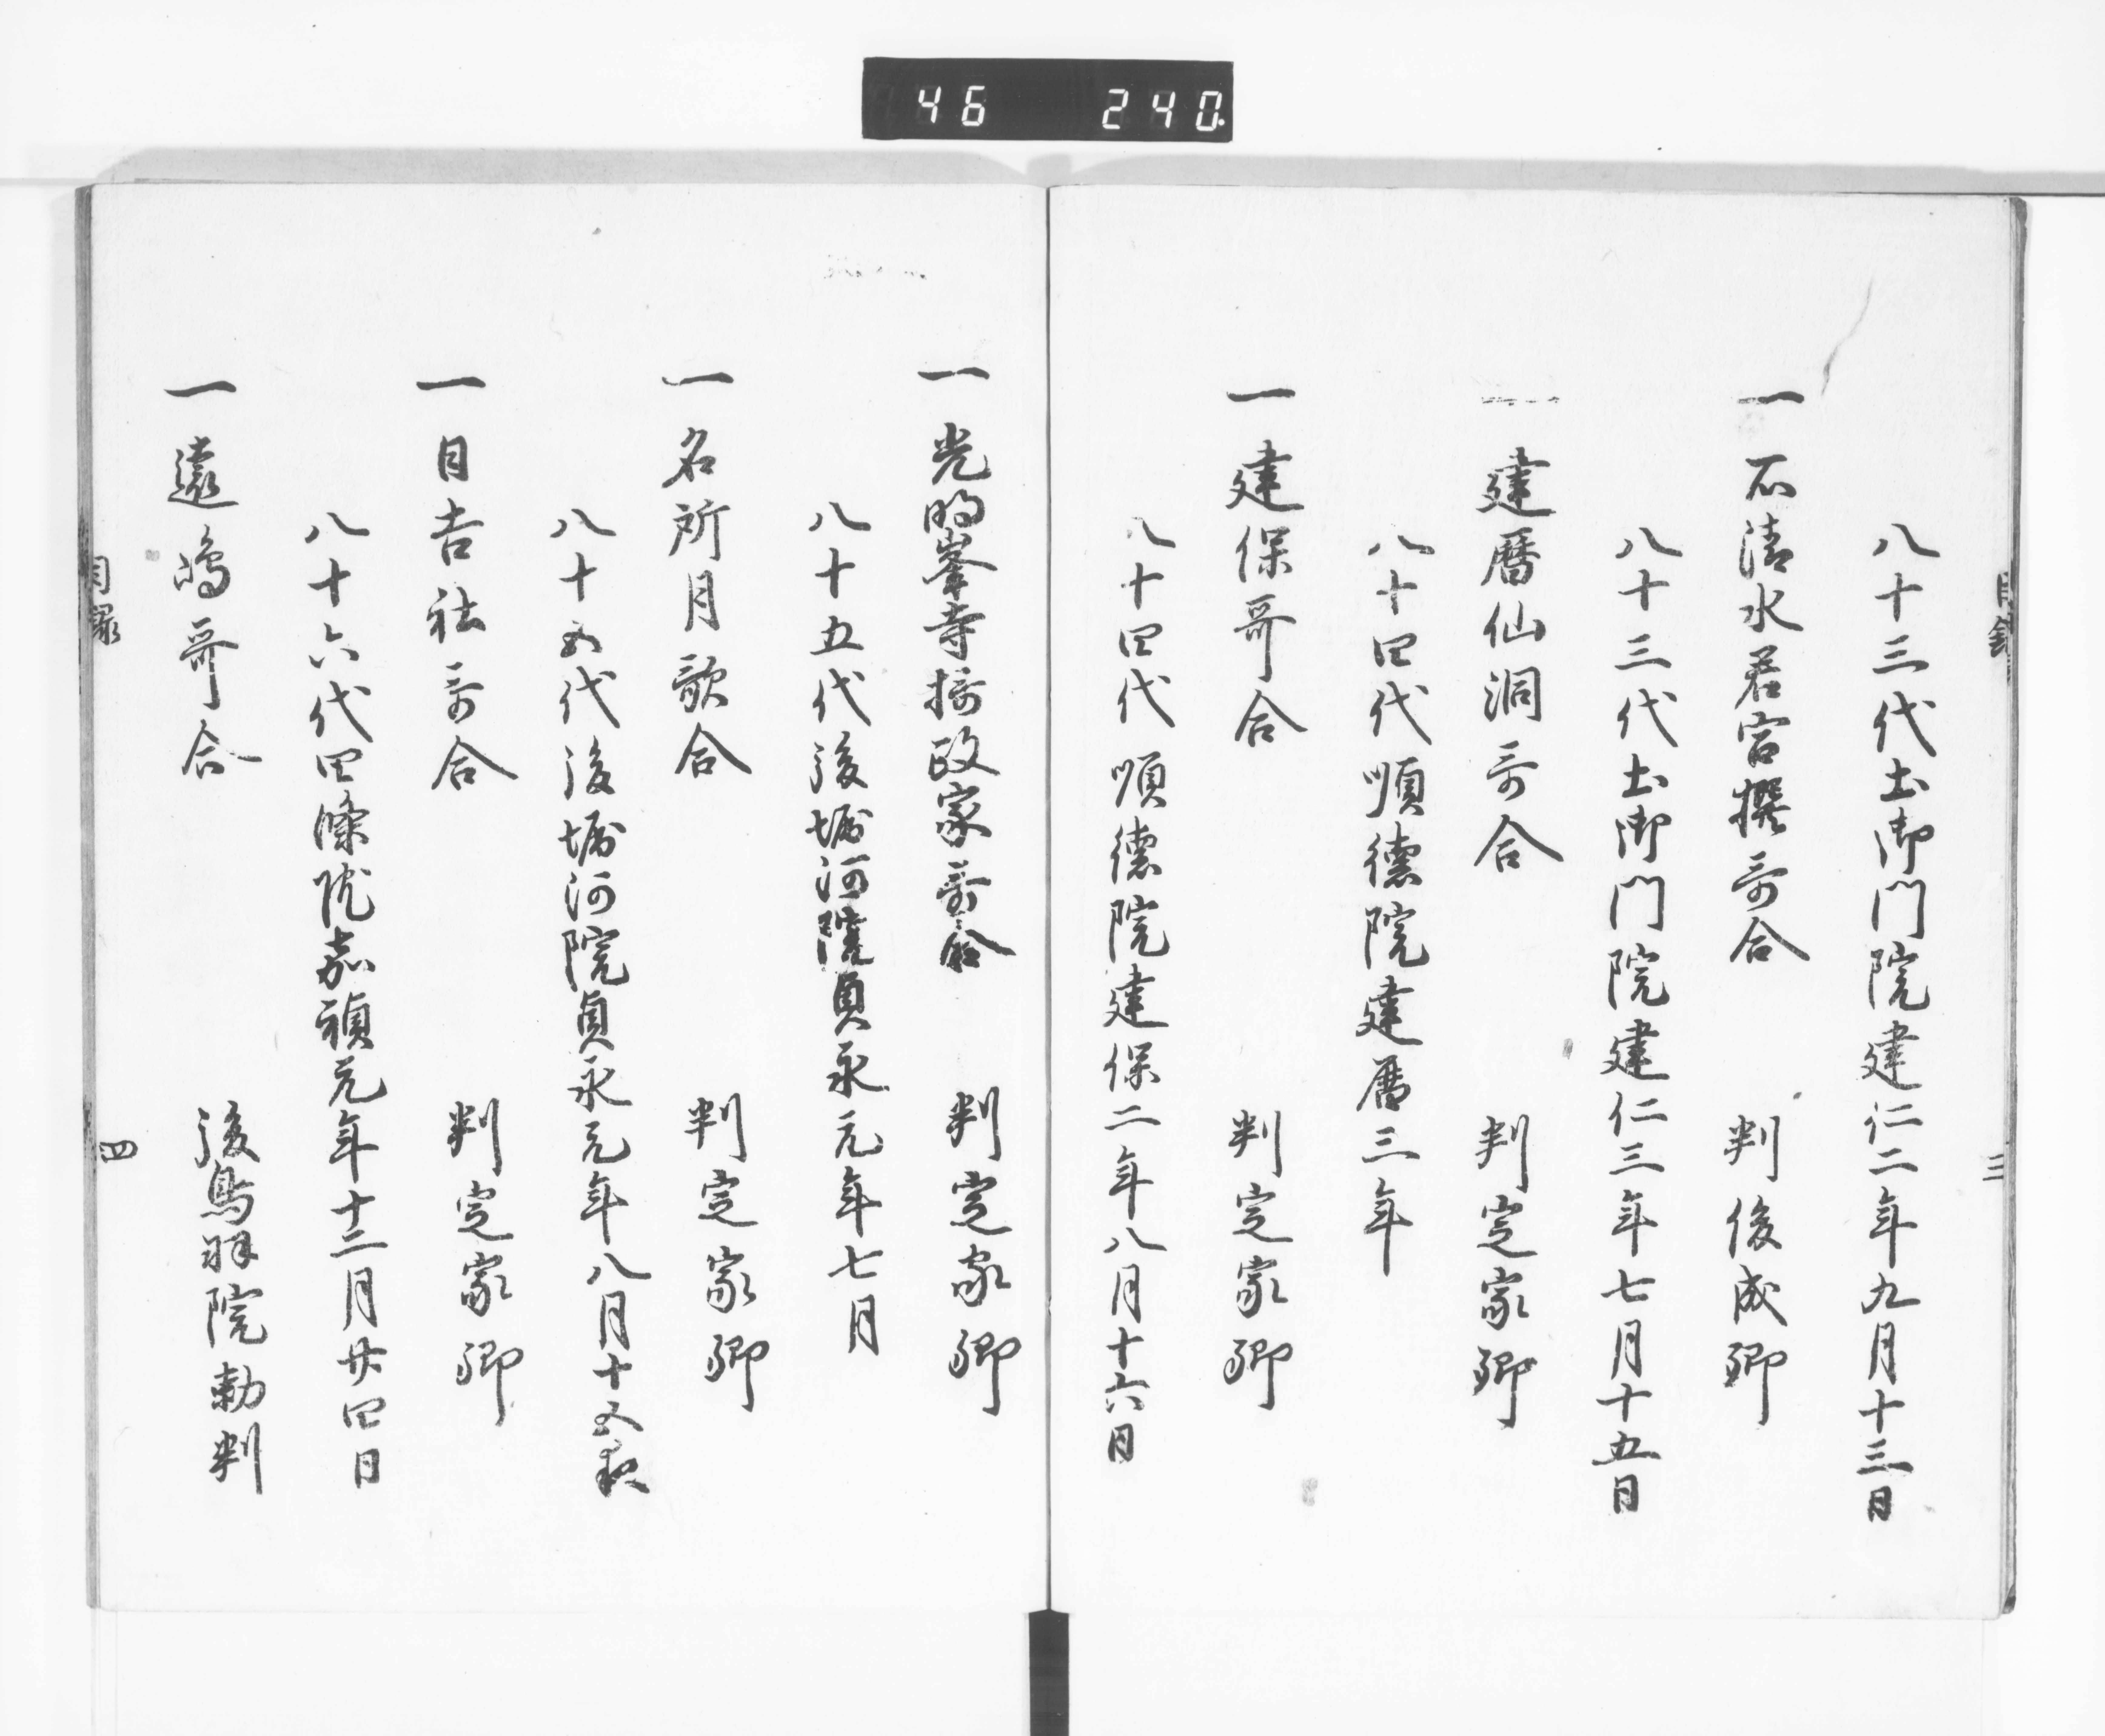 46 240
目録
三
八十三代土御門院建仁二年九月十三日
一 石清水若宮撰哥合 判俊成卿
八十三代土御門院建仁三年七月十五日
一 建暦仙洞哥合 判定家卿
八十四代順徳院建暦三年
一 建保哥合 判定家卿
八十四代順徳院建保二年八月十六日
一 光明峯寺摂政家哥合 判定家卿
八十五代後堀河院貞永元年七月
一 名所月歌合 判定家卿
八十五代後堀河院貞永元年八月十五夜
一 日吉社哥合 判定家卿
八十六代四條院嘉禎元年十二月廿四日
一 遠嶋哥合 後鳥羽院勅判
目録
四